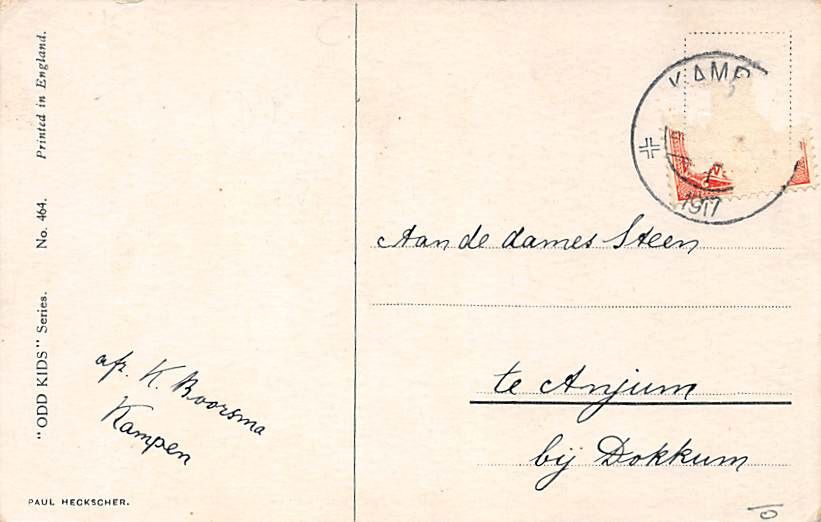 "ODD KIDS" Series. No. 464. Printed in England.
PAUL HECKSCHER.
afz. K. Boorsma
Kampen
KAMP
1917
Aan de dames Steen
te Anjum
bij Dokkum